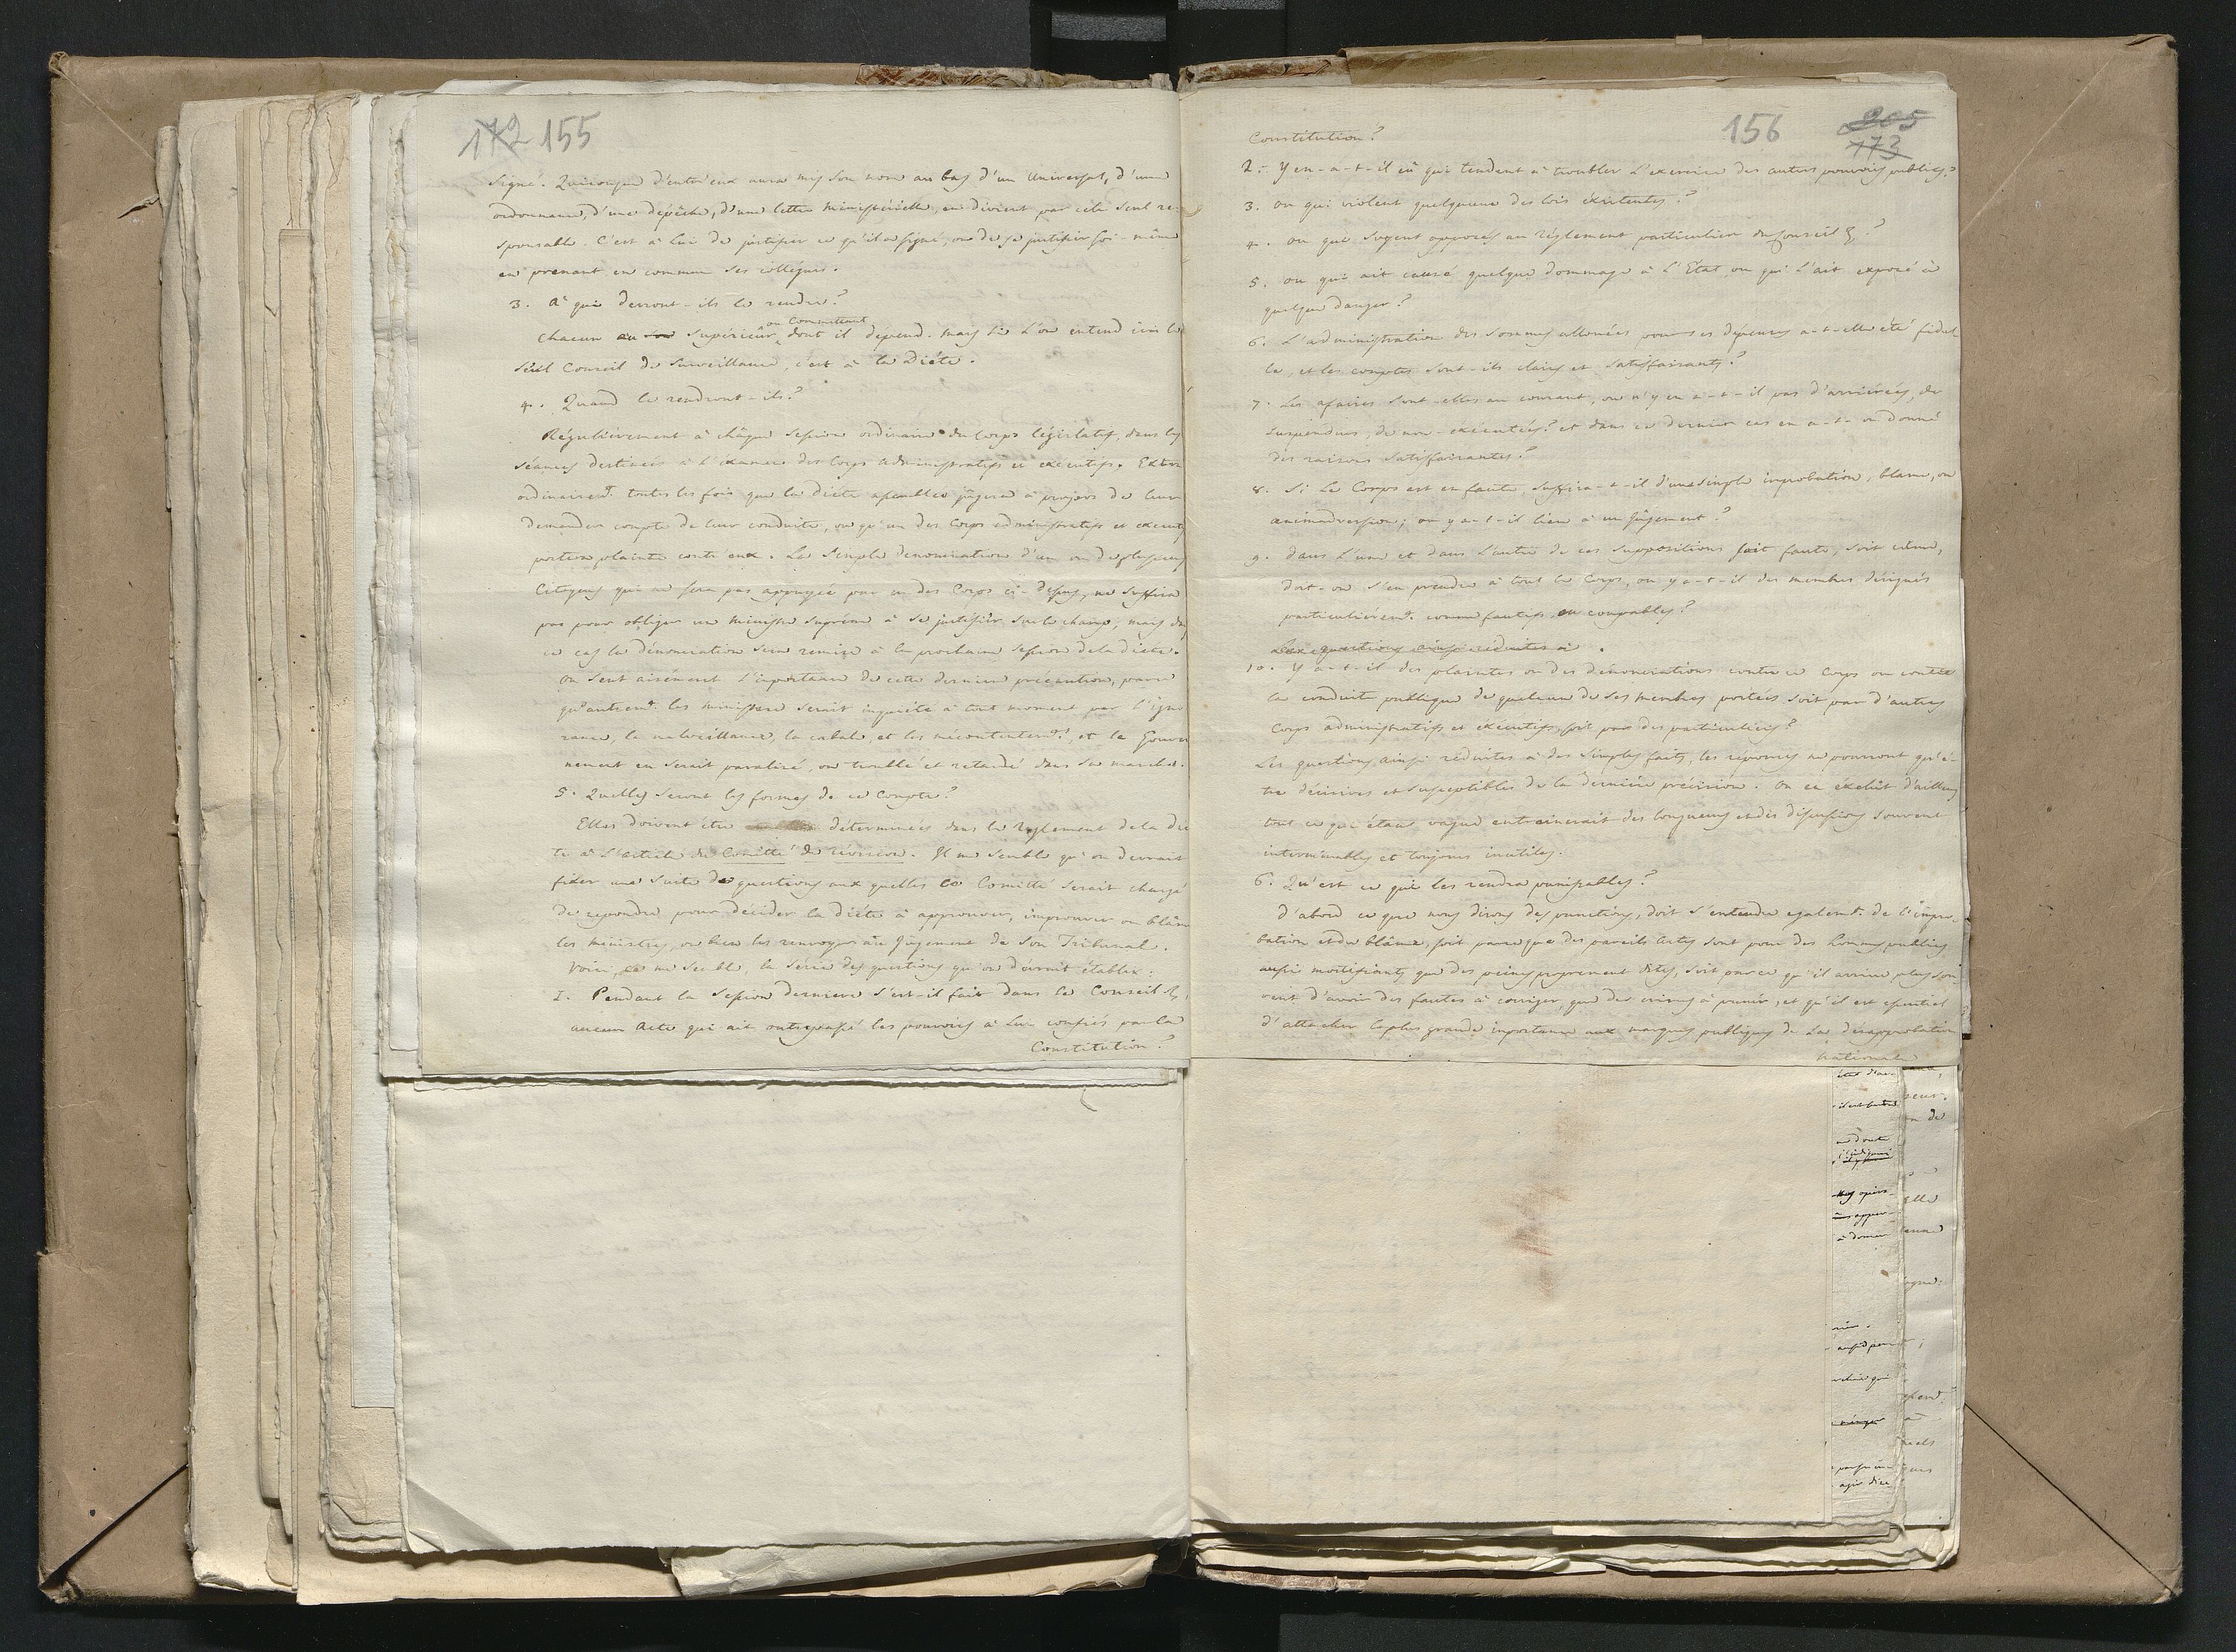 172 155
signé. Quiconque d'entr'eux aura mis son nom au bas d'un Universal, d'une
ordonnance, d'une dépêche, d'une lettre ministérielle, en devient par cela seul re-
sponsable. C'est à lui de justifier ce qu'il a signé, ou de se justifier soi-même
en prenant en commun ses collégues.
3. à qui devront-ils le rendre?
Chacun au son supérieur ou Commettant dont il dépend. mais si l'on entend ici le
seul Conseil de Surveillance, c'est à la Diéte.
4. Quand le rendront-ils?
Réguliérement à châque session ordinaire du Corps législatif, dans les
séances destinées à l'éxamen des Corps administratifs et exécutifs. Extra
ordinairemt. toutes les fois que la diéte assemblée jûgera à propos de leur
demander compte de leur conduite, ou qu'un des Corps administratifs et executifs
portera plainte contr'eux. La simple denonciation d'un ou de plusieurs
Citoyens qui ne sera pas appuyée par un des Corps ci-dessus, ne suffira
pas pour obliger un Ministre suprème à se justifier sur le champ; mais dans
ce cas la dénonciation sera remise à la prochaine session de la diéte.
On sent aisément l'importance de cette derniere précaution, parce
qu'autremt. les ministere serait inquiété à tout moment par l'igno
rance, la malveillance, la cabale, et les mécontentemts, et le Gouver
nement en serait paralisé, ou troublé et retardé dans sa marche.
5. Quelles seront les formes de ce Compte?
Elles doivent être déterminées dans le Réglement de la Dié
te à l'article du Comitté de révision. Il me semble qu'on devrait
fixer une suite de questions aux quelles ce Comitté serait chargé
de repondre pour décider la diéte à approuver, improuver ou blâmer
les ministres, ou bien les renvoyer au Jûgement de son Tribunal.
Voici, ce me semble, la série des questions qu'on devrait établir:
1. Pendant la Session derniere s'est-il fait dans le Conseil &,
aucun Acte qui ait outrepassé les pouvoirs à lui confiés par la
Constitution?
156 205
173
Constitution?
2. Y en-a-t-il eû qui tendent à troubler l'exercice des autres pouvoirs publics?
3. ou qui violent quelqu'une des lois éxistentes?
4. ou qui soyent opposés au réglement particulier du Conseil &?
5. ou qui ait causé quelque dommage à l'État ou qui l'ait exposé à
quelque danger?
6. L'administration des sommes allouées pour ses dépenses a-t-elle été fidel
le, et les comptes sont-ils clairs et satisfaisants?
7. Les afaires sont-elles au courant, ou n'y en a-t-il pas d'arriérées, de
suspendues, de non-exécutées? et dans ce dernier cas en a-t-on donné
des raisons satisfaisantes?
8. Si le Corps est en faute, suffira-t-il d'une simple improbation, blame, ou
animadversion; ou y a-t-il lieu à un Jûgement?
9. dans l'une et dans l'autre de ces suppositions soit faute, soit crime,
doit-on s'en prendre à tout le Corps, ou y a-t-il des membres désignés
particuliéremt. comme fautifs ou coupables?
Les questions ainsi réduites à.
10. Y a-t-il des plaintes ou des dénonciations contre ce Corps ou contre
la conduite publique de quelcun de ses membres portées soit par d'autres
Corps administratifs et éxécutifs, soit par des particuliers?
Les questions ainsi réduites à des simples faits, les réponses ne pourront qu'ê-
tre décisives et susceptibles de la derniére précision. On en éxclût d'ailleurs
tout ce qui étant vague entrainerait des longueurs et des discussions souvent
interminables et toujours inutiles.
6. Qu'est ce qui les rendra punissables?
d'abord ce que nous dirons des punitions, doit s'entendre egalemt. de l'impro-
bation et du blâme, soit parceque des pareils Actes sont pour des hommes publics
aussi mortifiants que des peines proprement dites, soit parce qu'il arrive plus sou
vent d'avoir des fautes à corriger, que des crimes à punir, et qu'il est essentiel
d'attacher la plus grande importance aux marques publiques de la désapprobation
nationale